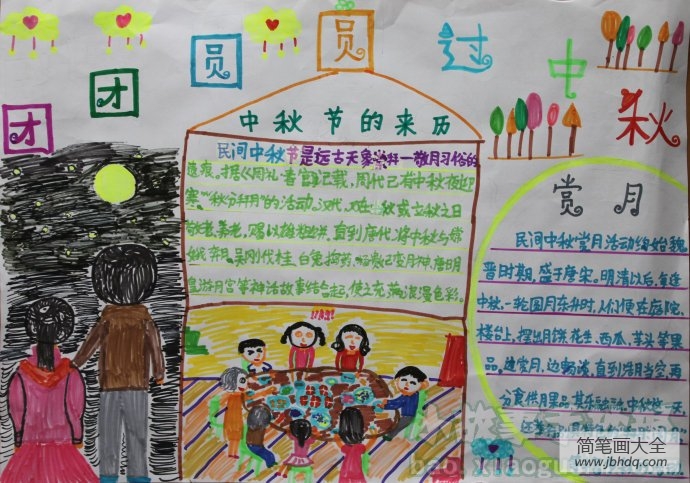 团团圆圆过中秋
中秋节的来历
民间中秋节是远古天象崇拜一敬月习俗的
遗痕。据《周礼·春官》记载，周代已有中秋夜迎
寒""秋分
的活动。汉代
秋或立秋之日
敬老、养老，赐以雄粗饼。直到唐代将中秋与嫦
娥奔月、吴刚伐桂、玉兔捣药、
变月神、唐明
皇游月宫等神话故事结合起，使之充满浪漫色彩。
赏月
民间中秋赏月活动约始魏
晋时期，盛于唐宋。明清以后，每逢
中秋，一轮圆月东升时，人们便在庭院、
楼台上，摆出月饼、花生、西瓜、芋头等果
品，边赏月，边畅谈，直到皓月当空，再
分食供月果品，其乐融融。中秋这一天，
还要
简笔画大全
www.jbhdq.com